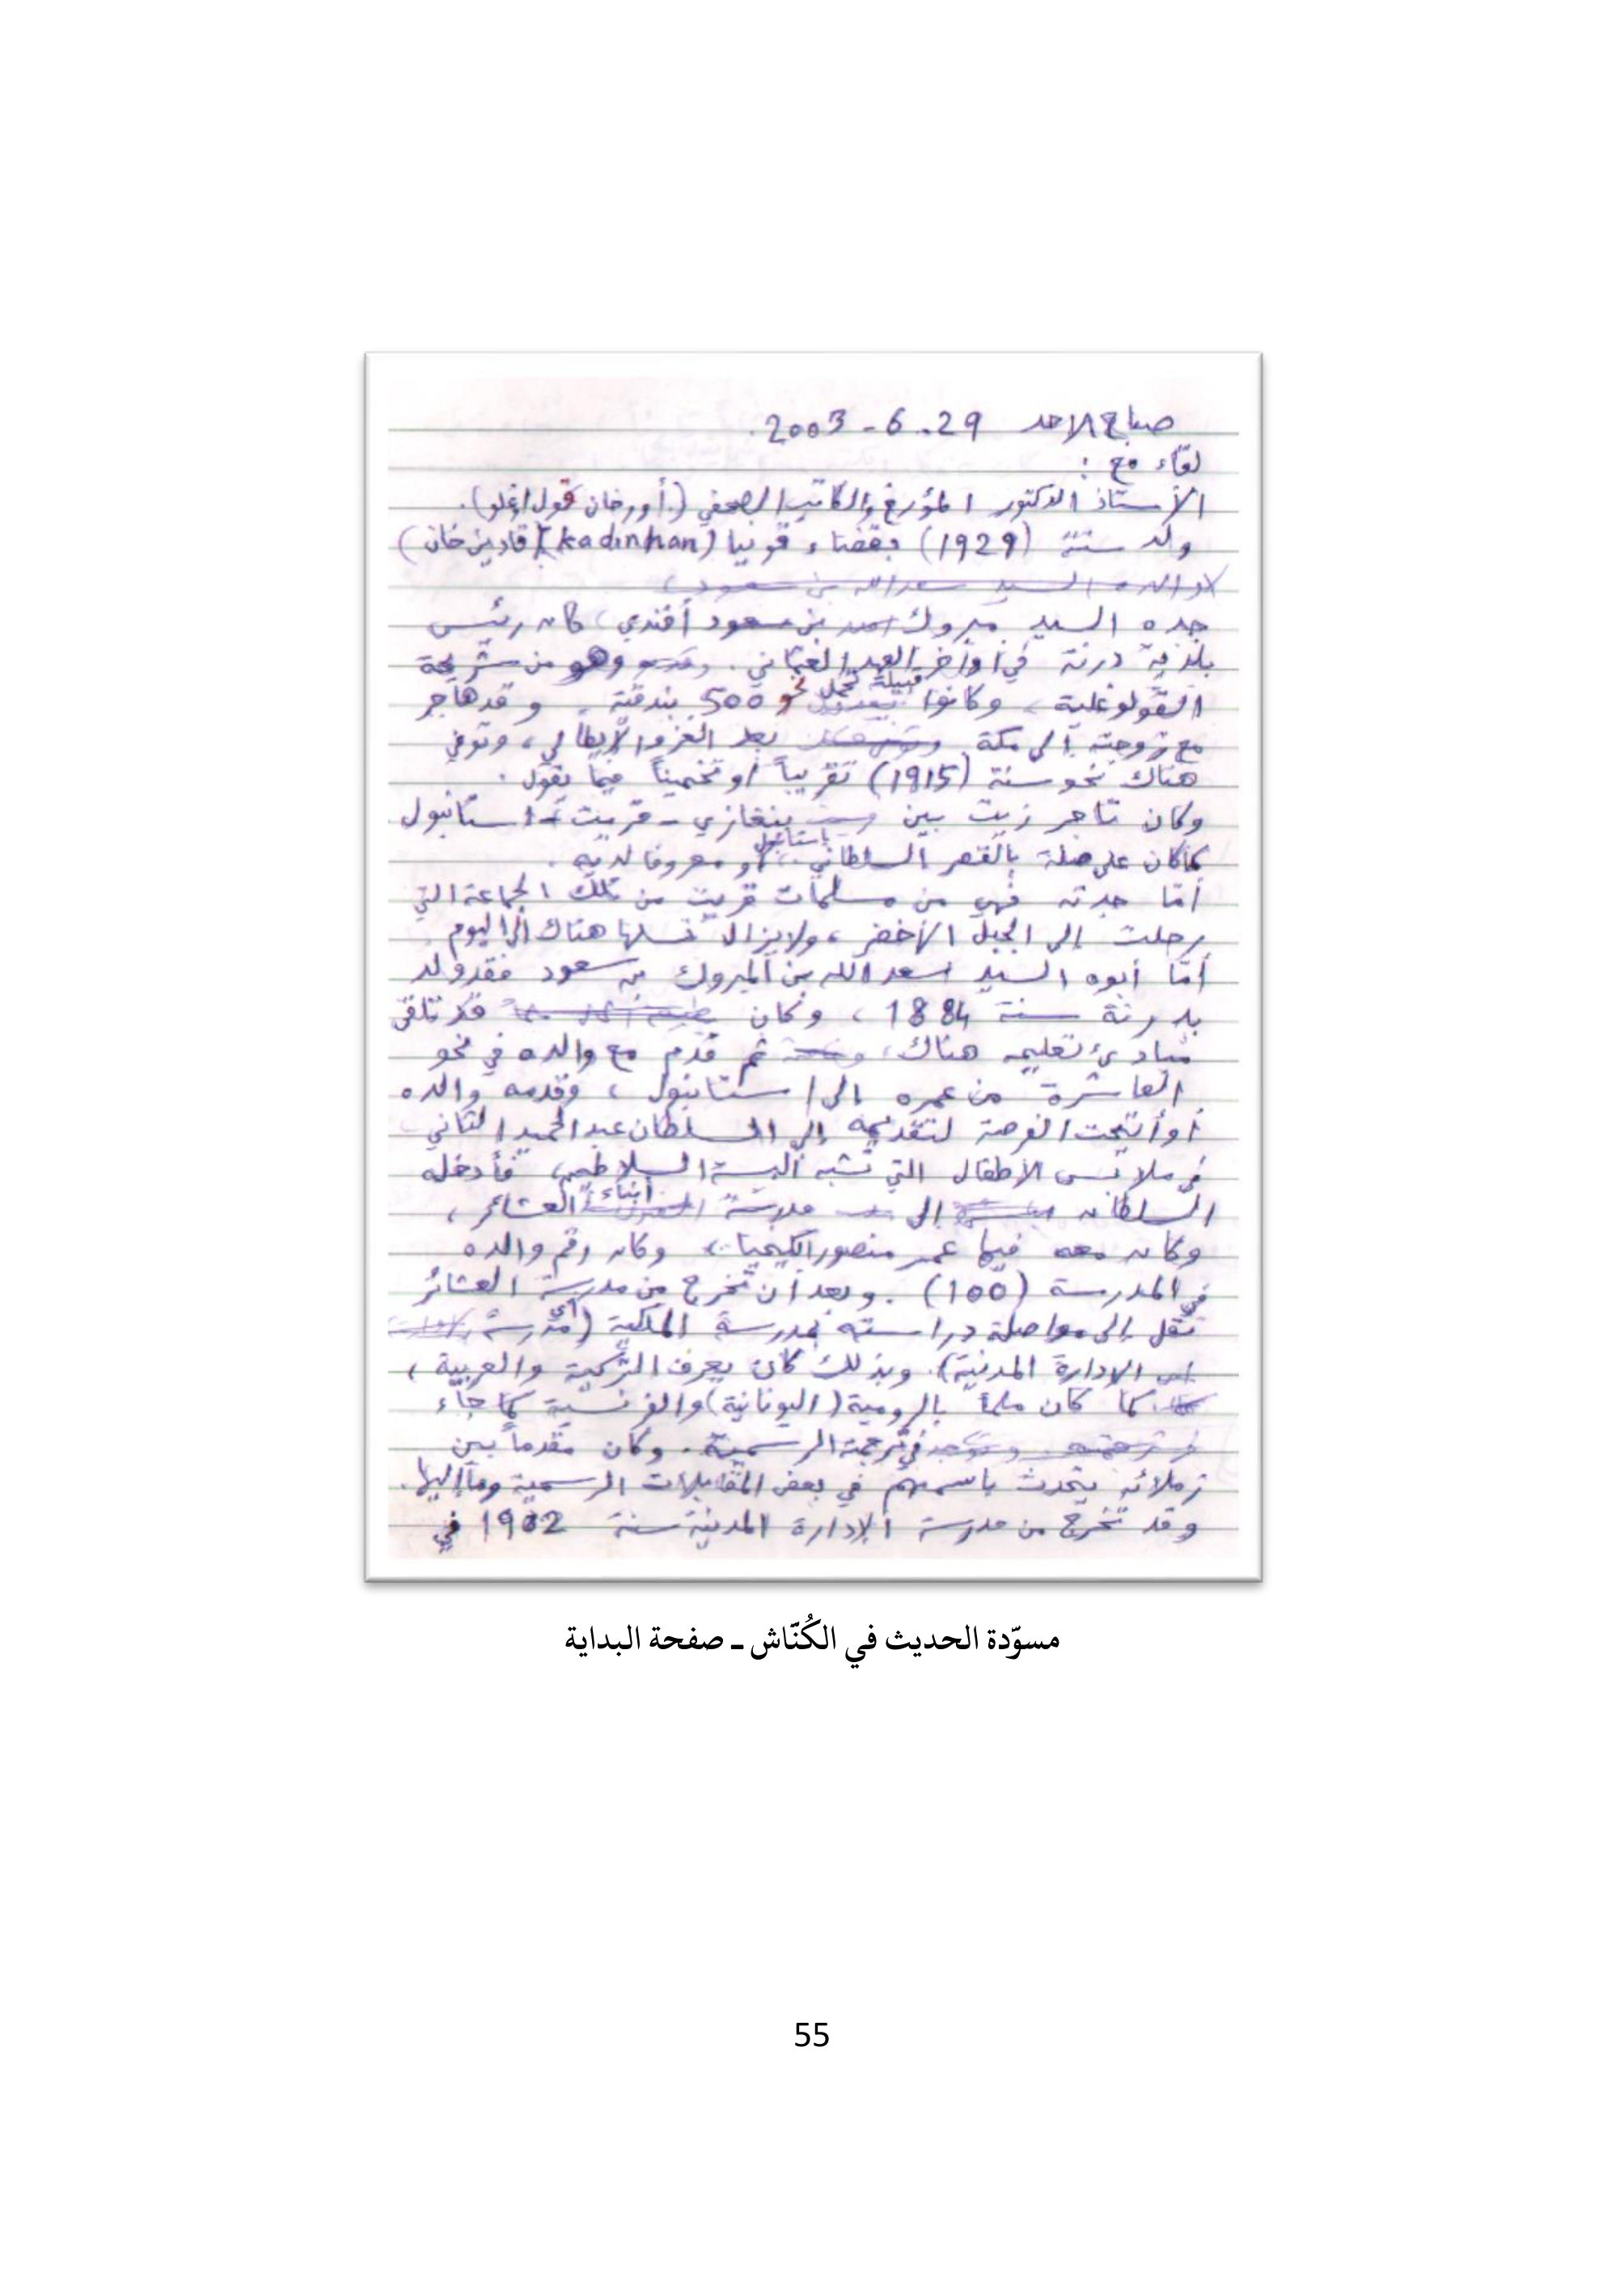 صباح الأحد 29-6-2003.
لقاء مع :
الأستاذ الدكتور المؤرخ والكاتب الصحفي (أورخان قول اغلو).
ولد سنة (1929) بقضاء قونيا (kadinhan) (قادين خان)
والده السيد سعد الله بن سعود
جده السيد مبروك بن سعود أفندي، كان رئيس
بلدية درنة في أواخر العهد العثماني. وهو من شريحة
القولوغلية، وكانوا قبيلة تحمل نحو 500 بندقية. وقد هاجر
مع زوجته إلى مكة بعد الغزو الإيطالي، وتوفي
هناك نحو سنة (1915) تقريباً أو تخميناً فيما يقول.
وكان تاجر زيت بين بنغازي - قريت - استانبول
كما كان على صلة بالقصر السلطاني باستانبول، أو معروفا لديه.
أمّا جدته فهي من مسلمات قريت من تلك الجماعة التي
رحلت إلى الجبل الأخضر، ولا يزال نسلها هناك إلى اليوم.
أمّا أبوه السيد سعد الله بن المبروك بن سعود فقد ولد
بدرنة سنة 1884، وكان قد تلقى
مبادئ تعليمه هناك، ثم قدم مع والده في نحو
العاشرة من عمره إلى استانبول، وقدمه والده
أو أتيحت الفرصة لتقديمه إلى السلطان عبد الحميد الثاني
في ملابس الأطفال التي تشبه ألبسة السلاطين، فأدخله
السلطان إلى مدرسة أبناء العشائر،
وكان معه فيها عمر منصور الكيخيا، وكان رقم والده
في المدرسة (100). وبعد أن تخرج من مدرسة العشائر
نقل إلى مواصلة دراسته بمدرسة الملكية (أي مدرسة
الإدارة المدنية). وبذلك كان يعرف التركية والعربية،
كما كان ملماً بالرومية (اليونانية) والفرنسية كما جاء
في ترجمته الرسمية. وكان مقدماً بين
زملائه يتحدث باسمهم في بعض المقابلات الرسمية وما إليها.
وقد تخرج من مدرسة الإدارة المدنية سنة 1902 في
مسوّدة الحديث في الكُنّاش ـ صفحة البداية
55